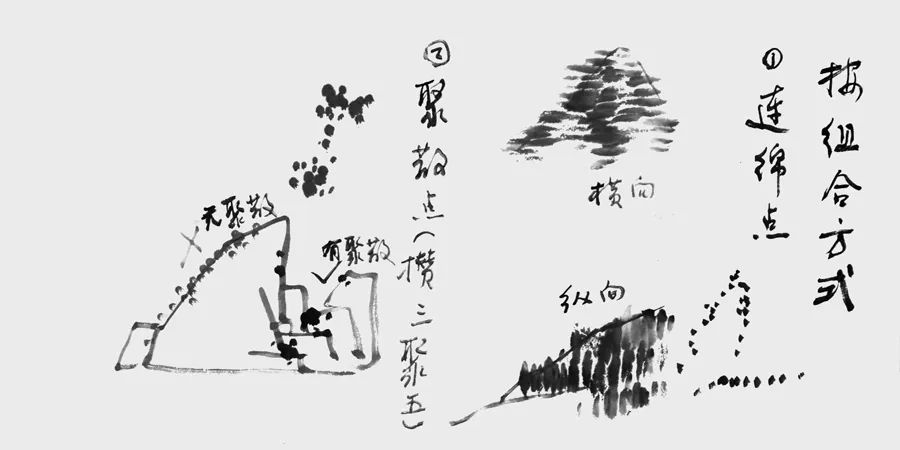 按组合方式
①连绵点
横向
纵向
②聚散点(攒三聚五)
有聚散
无聚散